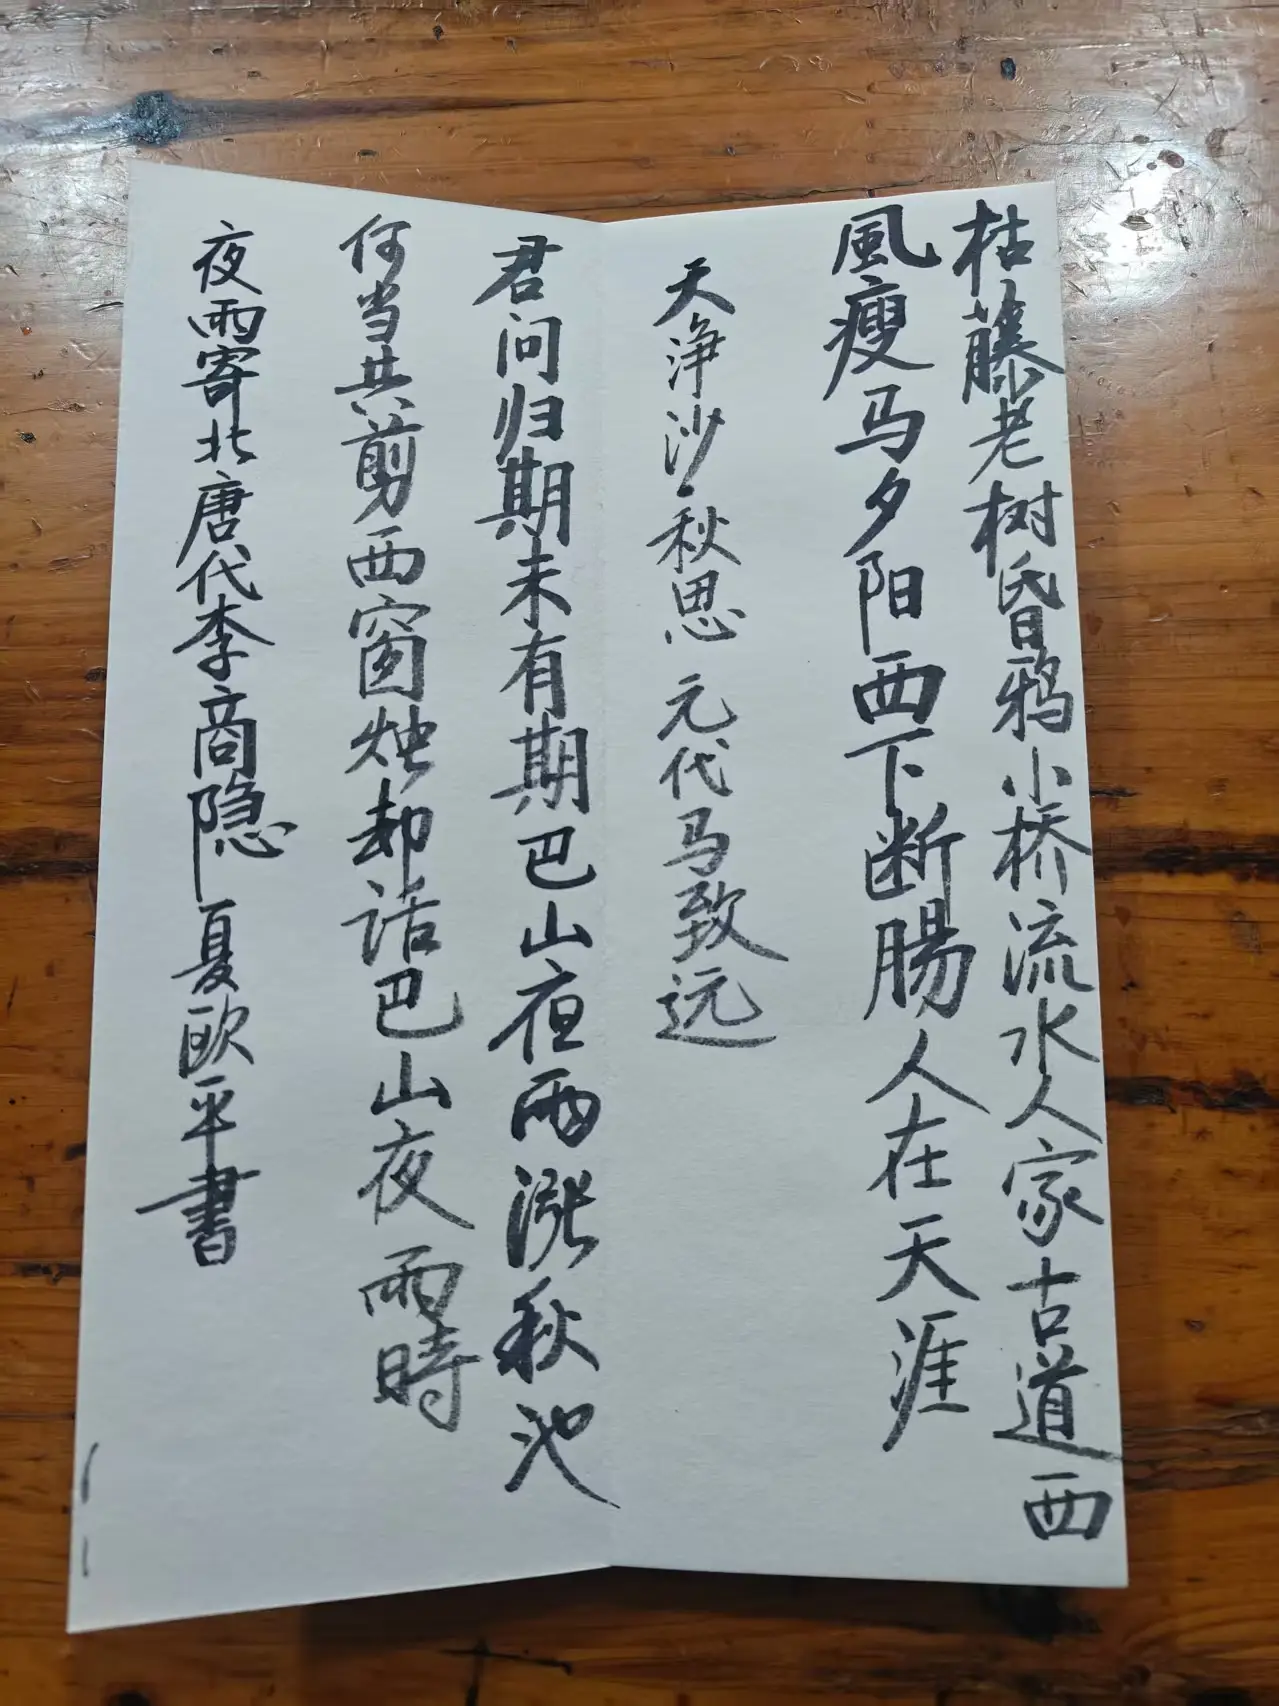 枯藤老树昏鸦小桥流水人家古道西
風瘦马夕阳西下断腸人在天涯
天浄沙·秋思 元代马致远
君问归期未有期巴山夜雨漲秋池
何当共剪西窗烛却话巴山夜雨時
夜雨寄北唐代李商隐夏欧平書